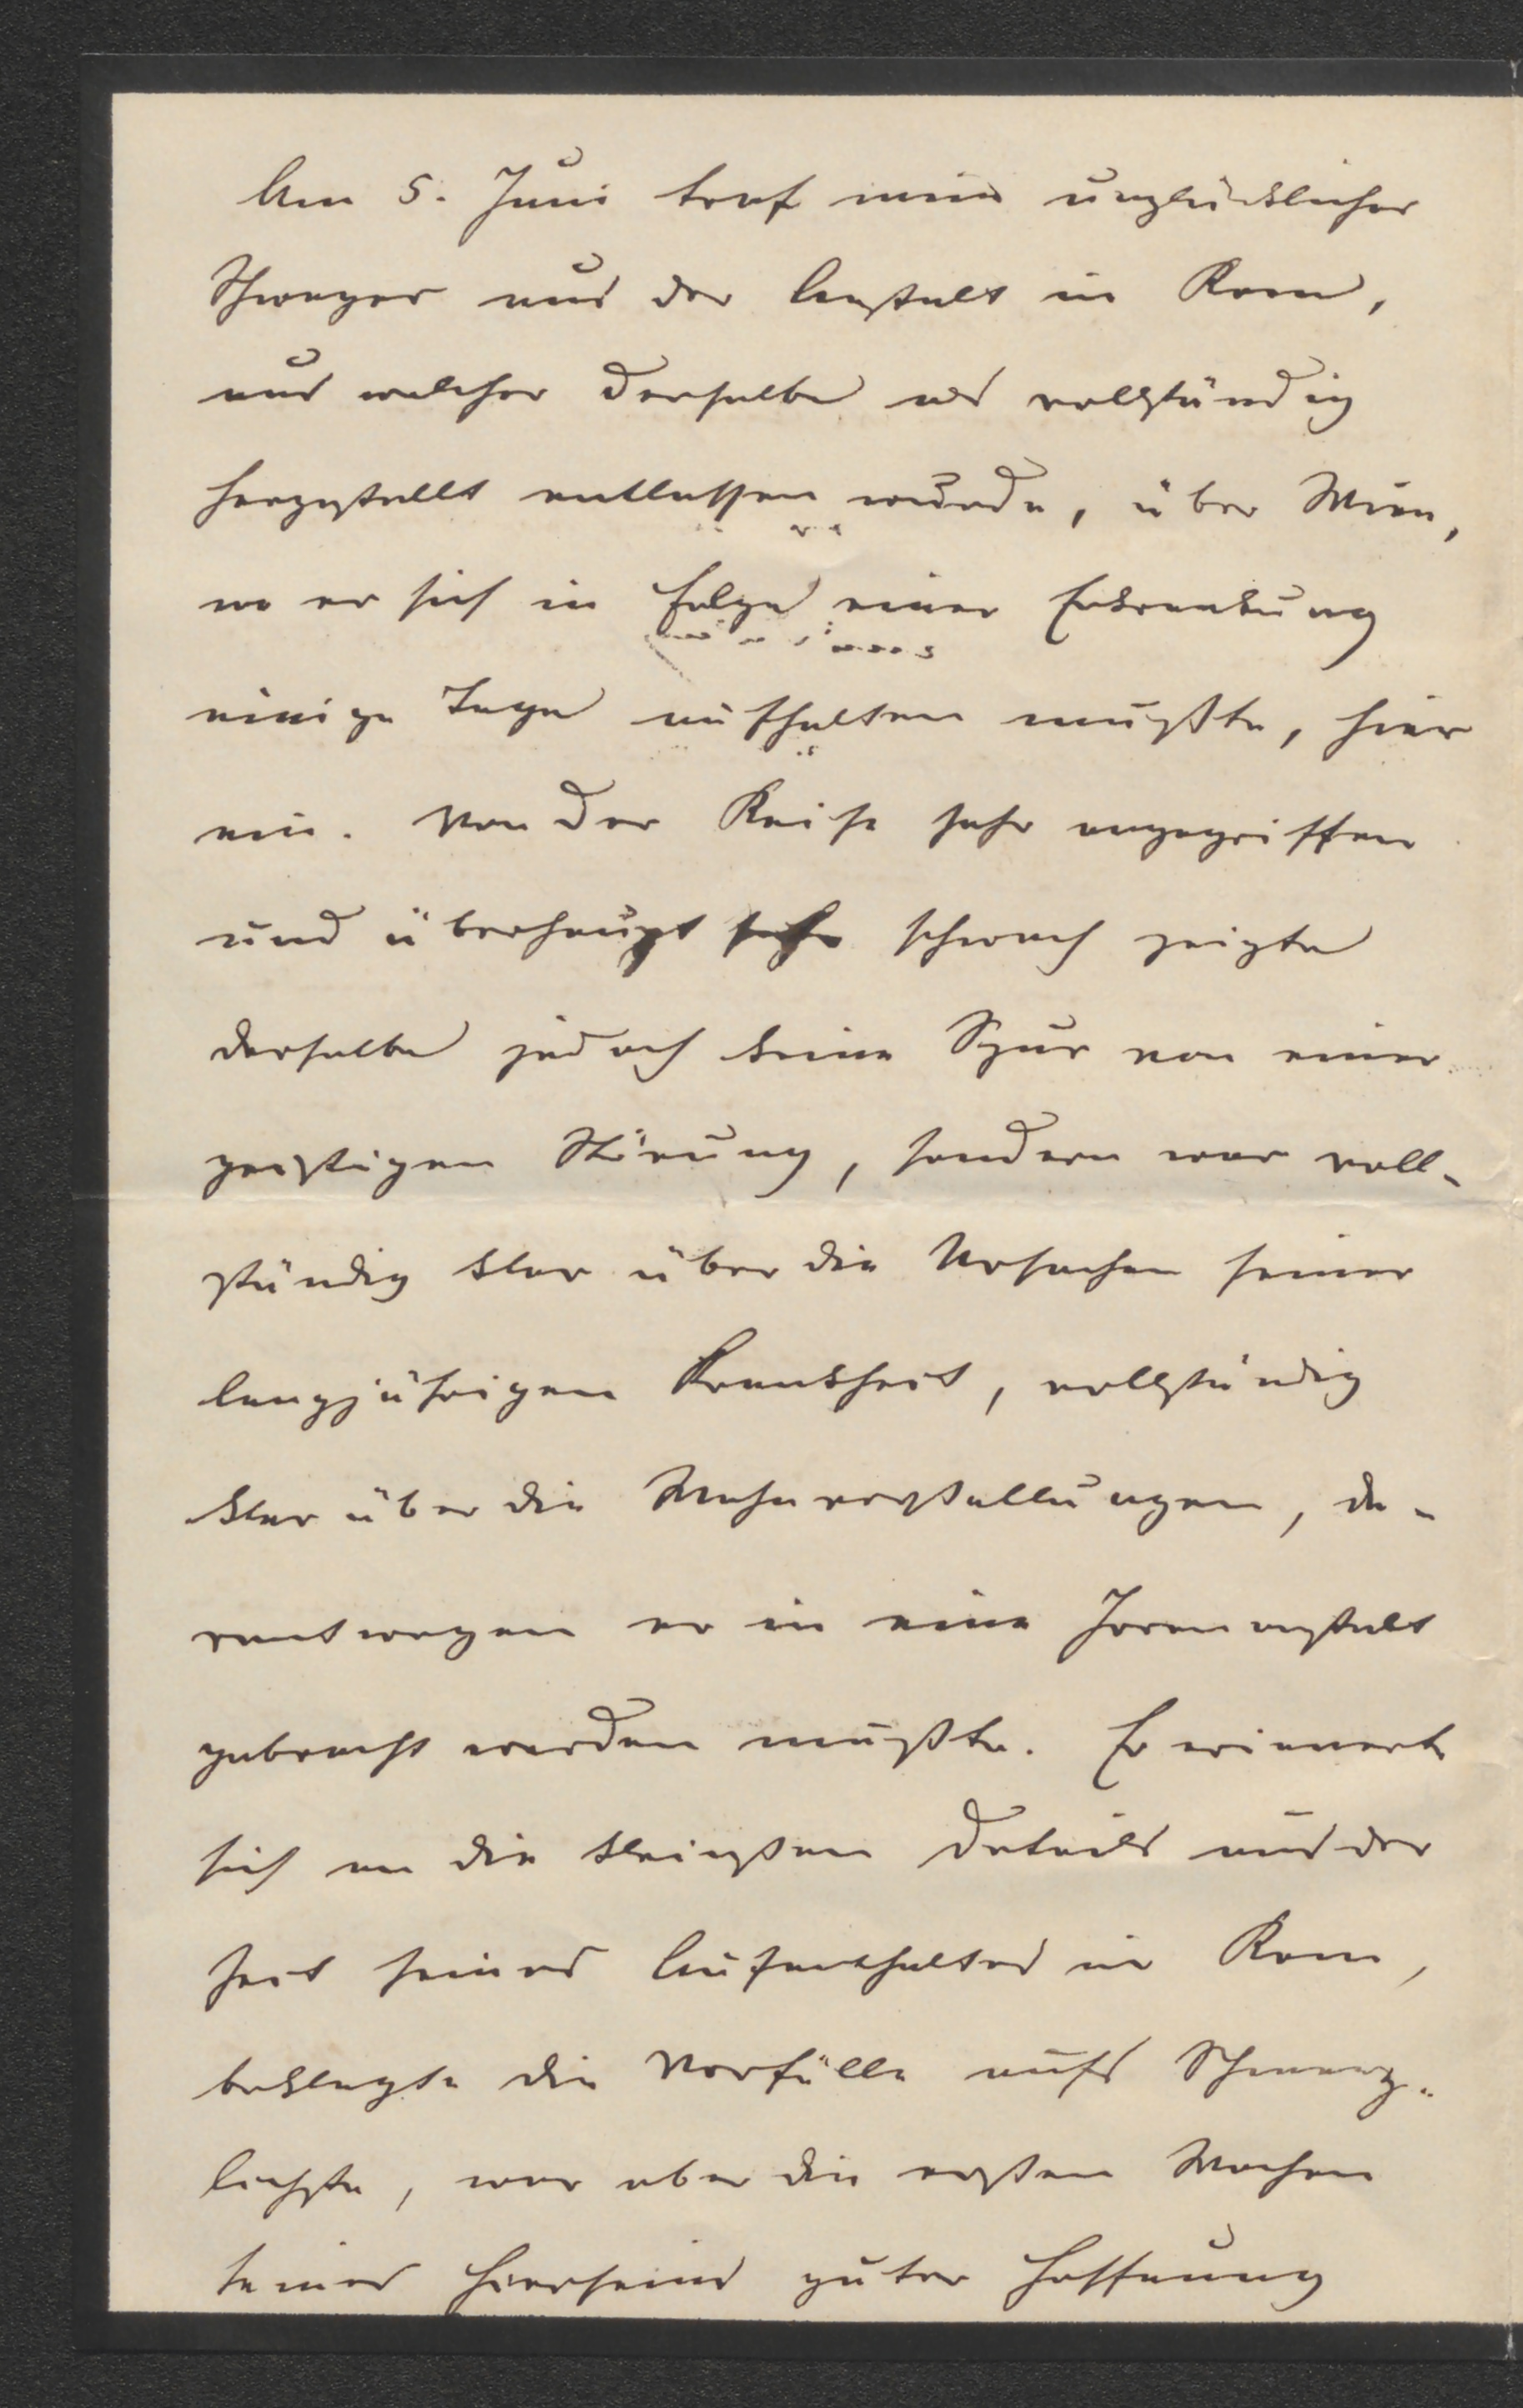 Am 5. Juni traf mein unglücklicher
Schwager aus der Anstalt in Rom,
aus welcher derselbe als vollständig
hergestellt entlassen wurde, über Wien,
wo er sich in Folge einer Erkrankung
einige Tage aufhalten mußte, hier
ein. Von der Reise sehr angegriffen
und überhaupt sehr schwach zeigte
derselbe jedoch keine Spur von einer
geistigen Störung, sondern war voll-
ständig klar über die Ursachen seiner
langjährigen Krankheit, vollständig
klar über die Wahnvorstellungen, de-
rentwegen er in eine Irrenanstalt
gebracht werden mußte. Er erinnerte
sich an die kleinsten Details aus der
Zeit seines Aufenthaltes in Rom,
beklagte die Vorfälle aufs Schmerz-
lichste, war aber die ersten Wochen
seines Hierseins guter Hoffnung